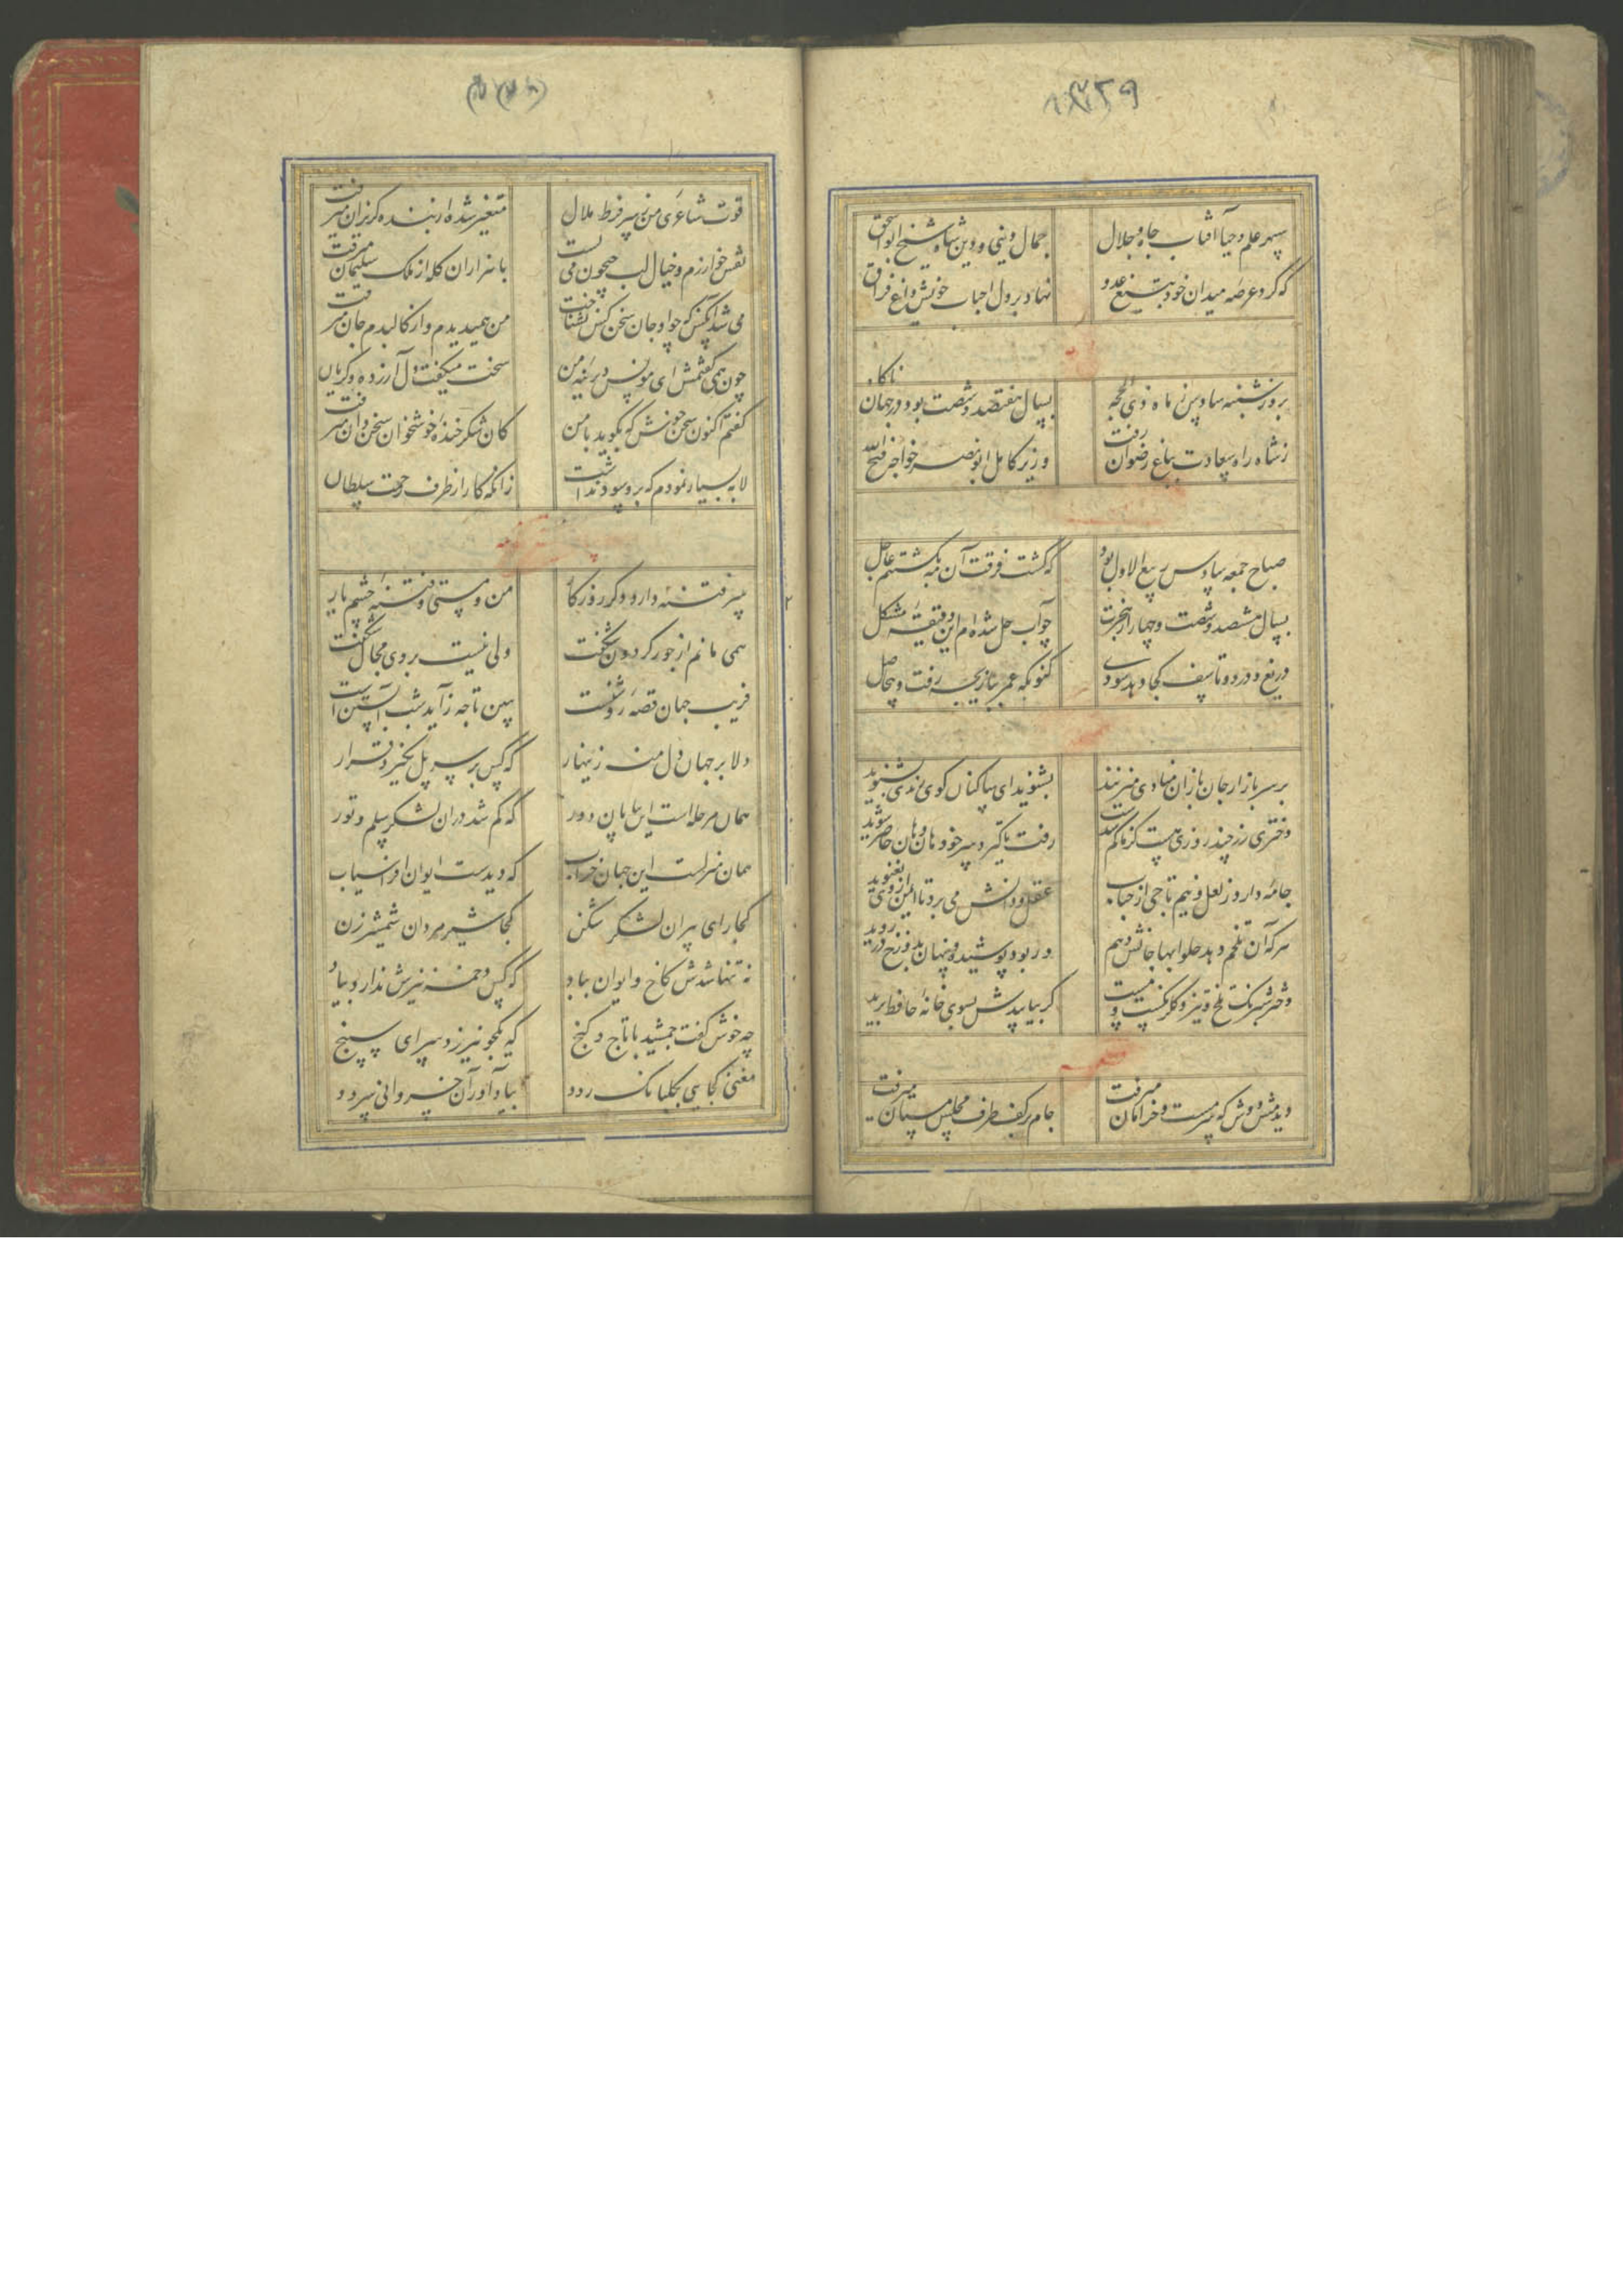 سپهر علم و حیا آفتاب جاه و جلال جمال دنیی و دین شاه شیخ ابواسحق
که کرد عرصهٔ میدان خود بتیغ عدو نهاد بر دل احباب خویش داغ فراق
بروز شنبه سادس ز ماه ذی الحجه بسال هفتصد و شصت بود در جهان ناکاه
ز شاه راه سعادت بباغ رضوان رفت وزیر کامل ابو نصر خواجه فتح الله
صباح جمعه سادس ربیع الاول بود که گشت فرقت آن مه بکشتنم عاجل
بسال هشصد و شصت و چهار از هجرت چو آب حل شده ام این دقیقهٔ مشکل
دریغ و درد و تاسف کجا دهد سودی کنونکه عمر ببازیچه رفت و بیحاصل
بر سر بازار جان بازان منادی میزنند بشنوید ای ساکنان کوی رندی بشنوید
دختری رز چند روزی هست کز ما کم شدست رفت تا کیرد سر خود هان و هان حاضر شوید
جامه دارد ز لعل و نیم تاجی از حباب عقل و دانش می برد تا ایمن از وی نغنوید
هر که آن تلخم دهد حلوا بها جانش دهم ور بود پوشیده و پنهان بدوزخ در روید
دختر شبرنک تلخ و تیز و کلرنکست و مست کر بیابیدش بسوی خانهٔ حافظ برید
دیدمش دوش که سرمست و خرامان میرفت جام بر کف طرف مجلس مستان میرفت
قوت شاعری من ز سر فرط ملال متغیر شده از بنده کریزان میرفت
نقش خوارزم و خیال لب جیحون می بست با هزاران کله از ملک سلیمان میرفت
می شد آنکس که جو او جان سخن کس نشناخت من همیدیدم و از کالبدم جان میرفت
چون همی کفتمش ای مونس دیرینهٔ من سخت میکفت و دل آزرده و کریان میرفت
کفتم اکنون سخن خوش که بکوید با من کان شکر خندهٔ خوشخوان سخن دان میرفت
لابه بسیار نمودم که برو سود نداشت زانکه کار از طرف رحمت سلطان
سر فتنه دارد دکر روزکار من و مستی و فتنهٔ چشم یار
همی مانم از جور کردون شکفت ولی نیست بر وی مجال کفت
فریب جهان قصهٔ روشنست ببین تا چه زاید شب آبستن است
دلا بر جهان دل منه زینهار که کس بر سر پل نکیرد قرار
همان مرحله است این بیابان دور که کم شد در آن لشکر سلم و تور
همان منزلست این جهان خراب که دیدست ایوان افراسیاب
کجا رای پیران لشکر شکن کجا شیر مردان شمشیر زن
نه تنها شدش کاخ و ایوان بباد که کس دخمه نیزش ندارد بیاد
چه خوش کفت جمشید با تاج و کنج که یکجو نیرزد سرای سپنج
مغنی کجایی بکلبانک رود بیاد آور آن خسروانی سرود